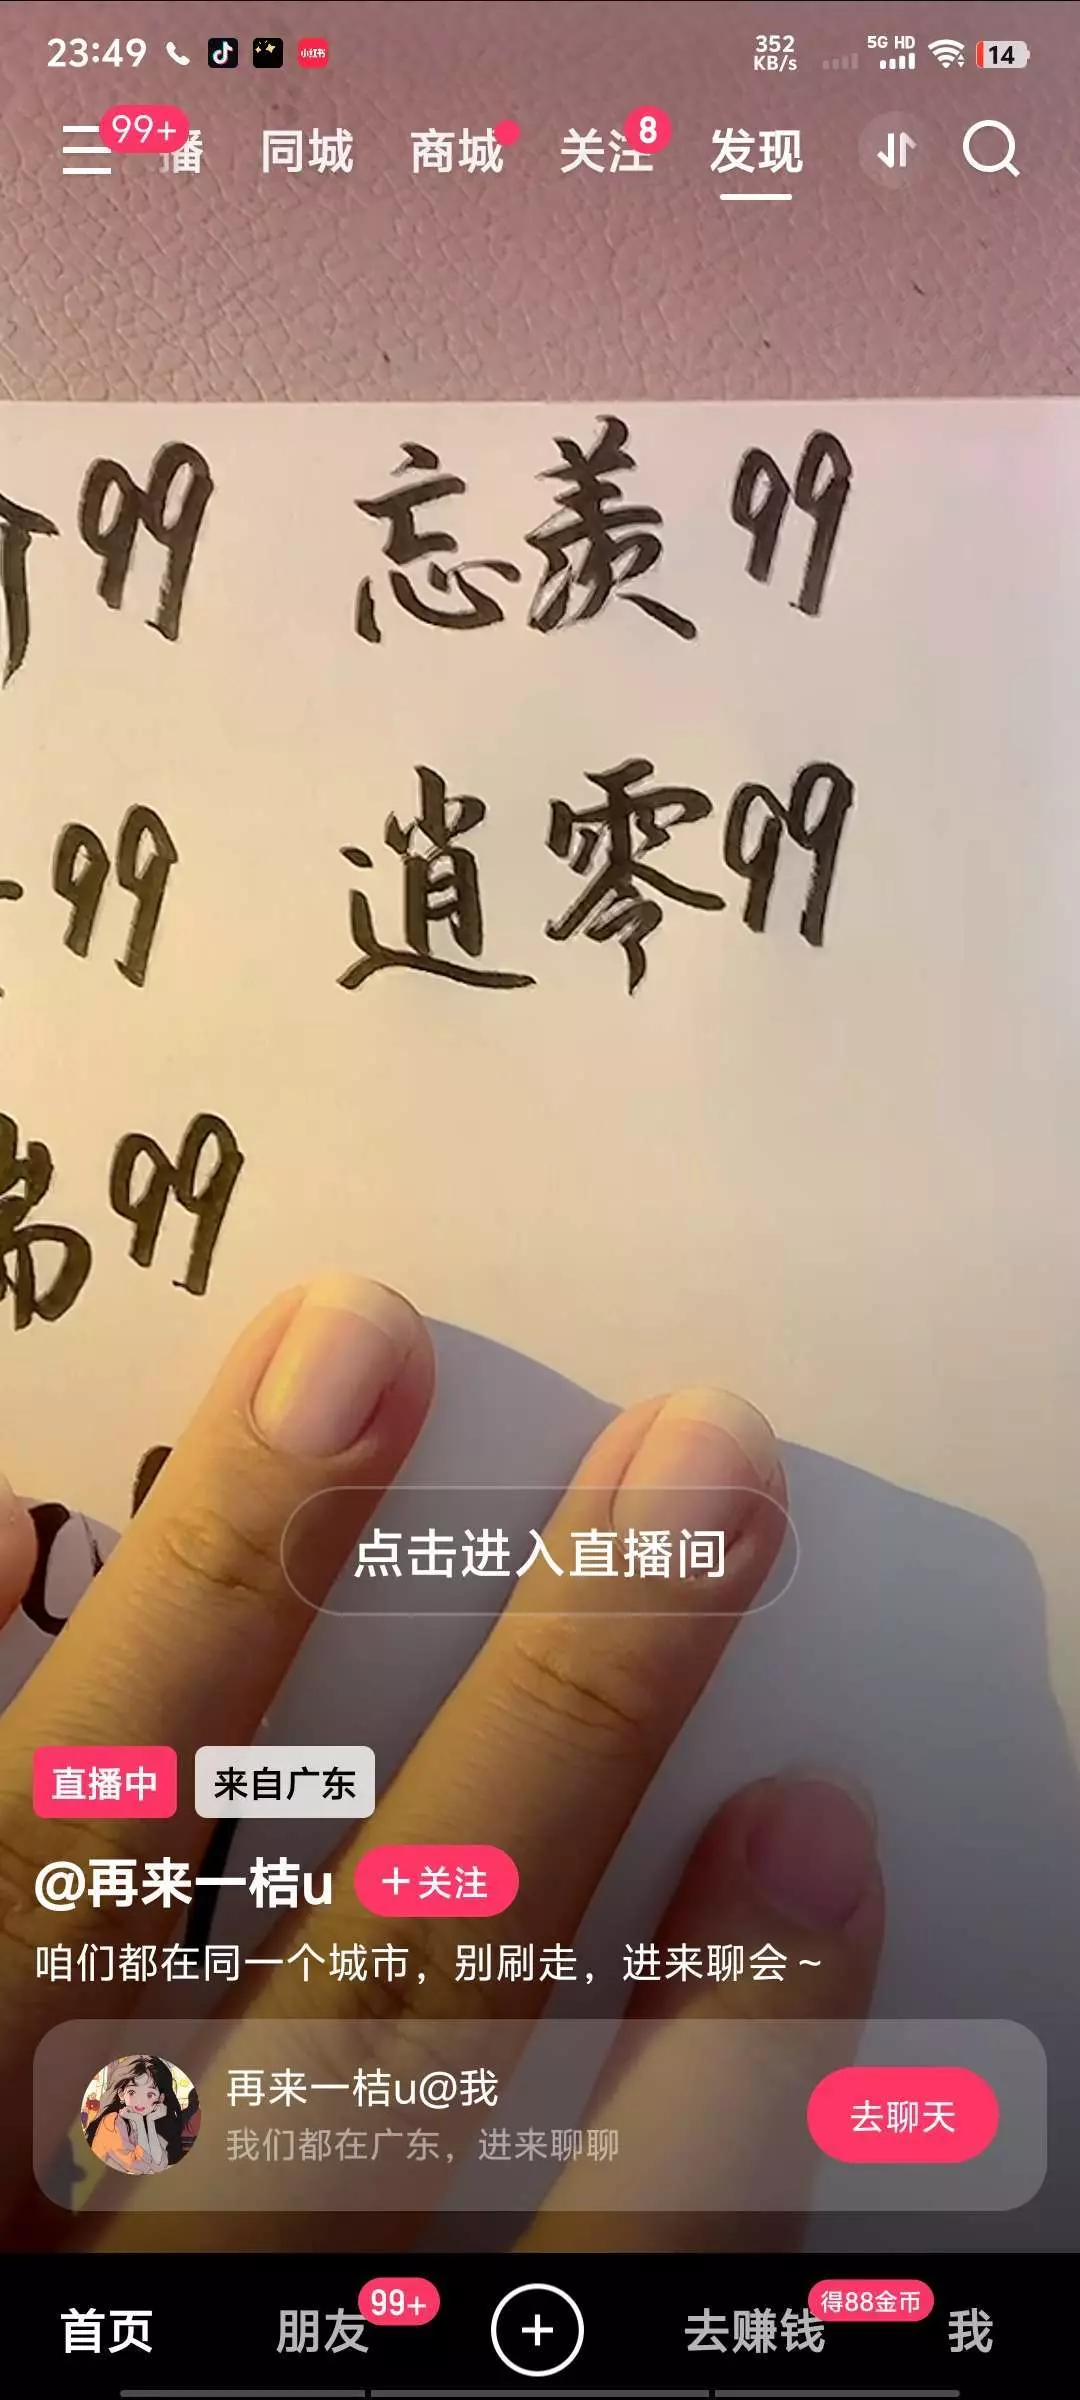 23:49
小红书
352 KB/s
5G HD
14
99+
播 同城 商城 关注 8 发现
99 忘羡 99
99 逍零99
99
点击进入直播间
直播中 来自广东
@再来一桔u +关注
咱们都在同一个城市，别刷走，进来聊会~
再来一桔u@我
我们都在广东，进来聊聊
去聊天
首页 朋友 99+ 去赚钱 得88金币 我